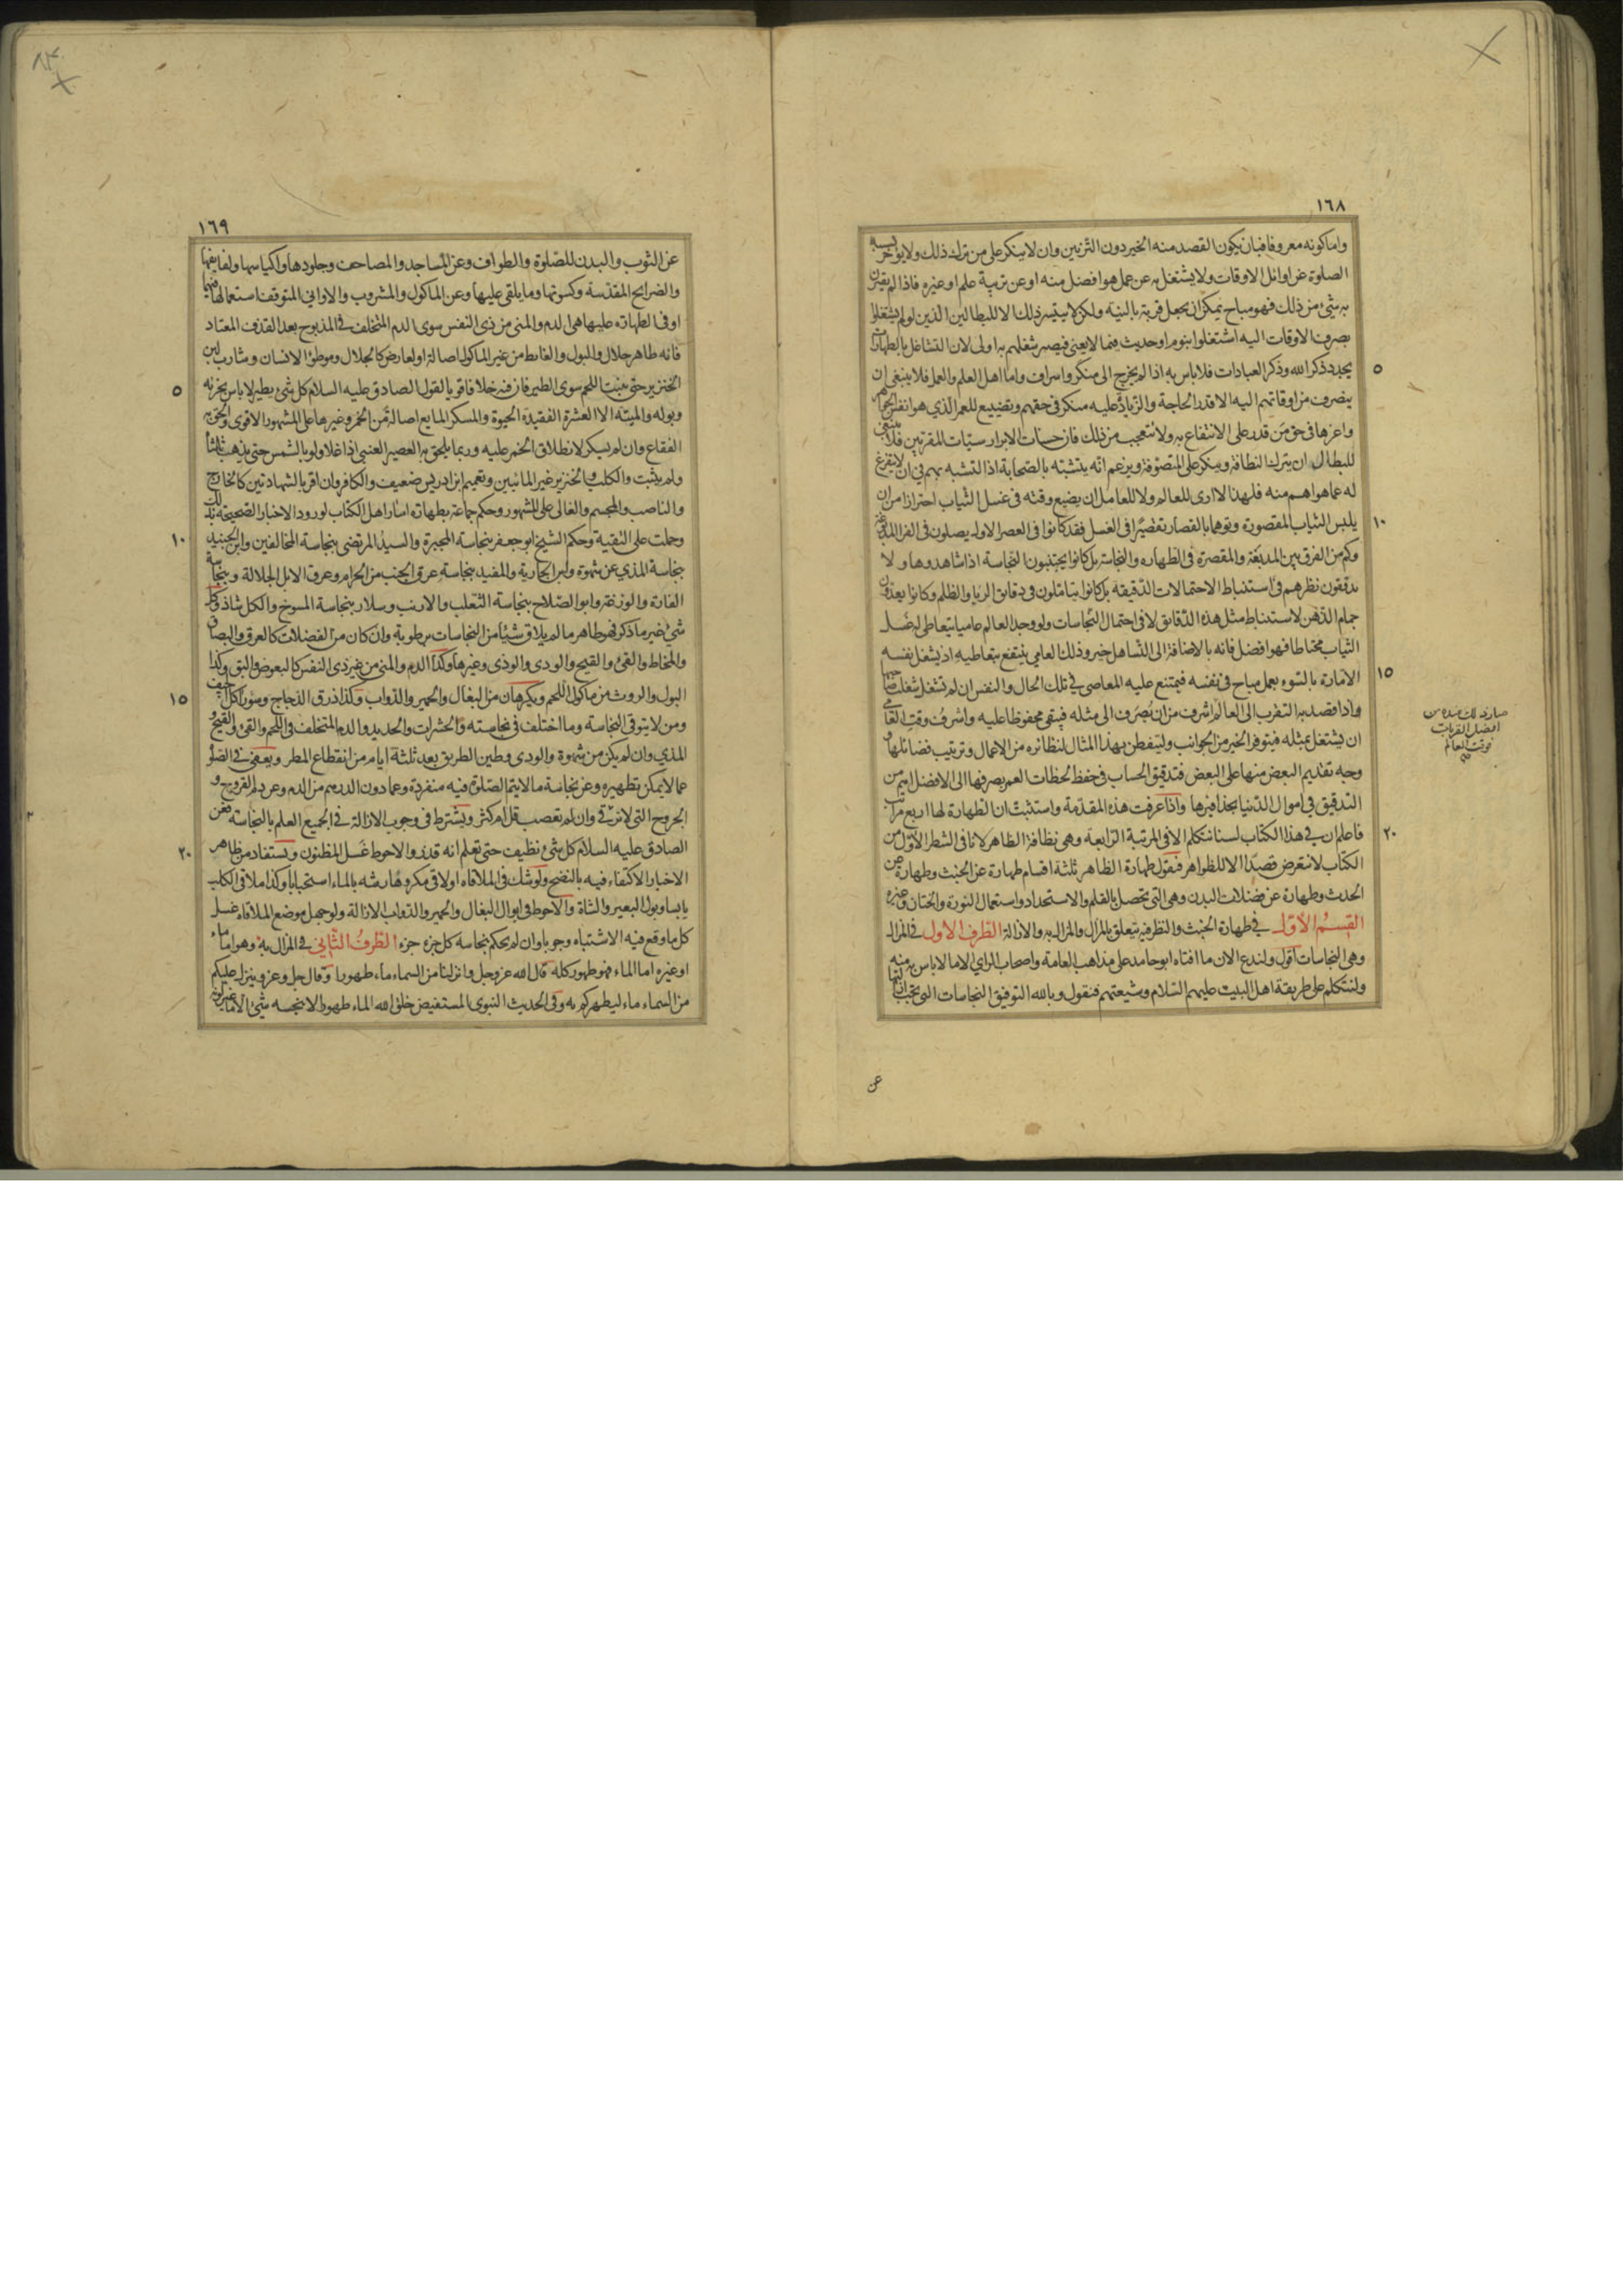 ١٦٨
واما كونه معروفا فبان يكون القصد منه الخير دون التزيين وان لا ينكر على من ترك ذلك ولا يؤخر بسببه
الصلوة عن اوائل الاوقات ولا يشتغل به عن عمل هو افضل منه او عن تربية علم او غيره فاذا لم يقترن
به شئ من ذلك فهو مباح يمكن ان يجعل قربة بالنية ولكن لا يتيسر ذلك الا للبطالين الذين لو لم يشتغلوا
بصرف الاوقات اليه اشتغلوا بنوم او حديث فيما لا يعنى فيصير شغلهم به اولى لان التشاغل بالطهارات
٥
يجدد ذكر الله وذكر العبادات فلا باس به اذا لم يخرج الى منكر واسراف واما اهل العلم والعمل فلا ينبغى ان
يصرف من اوقاتهم اليه الا قدر الحاجة والزيادة عليه منكر فى حقهم وتضييع للعمر الذي هو انفس الجواهر
واعزها فى حق من قدر على الانتفاع به ولا تتعجب من ذلك فان حسنات الابرار سيئات المقربين فلا ينبغى
للبطال ان يترك النظافة وينكر على المتصوفة ويزعم انه يتشبه بالصحابة اذ التشبه بهم في ان لا يتفرغ
له عما هو اهم منه فلهذا لا ارى للعالم ولا للعامل ان يضيع وقته فى غسل الثياب احترازا من ان
١٠
يلبس الثياب المقصورة وتوهما بالقصار تقصيرا فى الغسل فقد كانوا فى العصر الاول يصلون فى الفراء المدبوغة
وكم من الفرق بين المدبغة والمقصرة فى الطهاره والنجاسة بل كانوا يجتنبون النجاسة اذا شاهدوها ولا
يدققون نظرهم فى استنباط الاحتمالات الدقيقة بل كانوا يتاملون فى دقايق الريا والظلم وكانوا يعدون
جمام الذهن لاستنباط مثل هذه الدقايق لا فى احتمال النجاسات ولو وجد العالم عاميا يتعاطى له غسل
الثياب محتاطا فهو افضل فانه بالاضافة الى التساهل خير وذلك العامي ينتفع بتعاطيه اذ يشغل نفسه
١٥
الامارة بالسوء بعمل مباح فى نفسه فيمتنع عليه المعاصى في تلك الحال والنفس ان لم تشغل شغلت صاحبها
واذا قصد به التقرب الى العالم صار ذلك عنده من افضل القربات فوقت العالم اشرف من ان يصرف الى مثله فيبقى محفوظا عليه واشرف وقت العامى
ان يشتغل بمثله فيتوفر الخير من الجوانب وليتفطن بهذا المثال لنظائره من الاعمال وترتيب فضائلها و
وجه تقديم البعض منها على البعض فتدقيق الحساب فى حفظ لحظات العمر بصرفها الى الافضل اهم من
التدقيق في اموال الدنيا بحذافيرها واذا عرفت هذه المقدمة واستثبت ان الطهارة لها اربع مراتب
٢٠
فاعلم ان في هذا الكتاب لسنا نتكلم الا فى المرتبة الرابعة وهى نظافة الظاهر لانا فى الشطر الاول من
الكتاب لا نتعرض قصدا الا للظواهر فنقول طهارة الظاهر ثلثة اقسام طهارة عن الخبث وطهارة عن
الحدث وطهارة عن فضلات البدن وهى التي تحصل بالقلم والاستحداد واستعمال النورة والختان وغيره
القسم الاول في طهارة الخبث والنظر فيه يتعلق بالمزال والمزال به والازالة الطرف الاول في المزال
وهى النجاسات اقول ولندع الان ما افتاه ابو حامد على مذاهب العامة واصحاب الراي الا ما لا باس به منه
ولنتكلم على طريقة اهل البيت عليهم السلام وشيعتهم فنقول وبالله التوفيق النجاسات التي يجب ازالتها
عن
١٦٩
عن الثوب والبدن للصلوة والطواف وعن المساجد والمصاحف وجلودها واكياسها ولفايفها
والضرايح المقدسة وكسوتها وما يلقى عليها وعن الماكول والمشروب والاواني المتوقف استعمالها فيهما
او فى الطهارة عليها هى الدم والمنى من ذى النفس سوى الدم المتخلف في المذبوح بعد القذف المعتاد
فانه طاهر حلال والبول والغايط من غير الماكول اصالة او لعارض كالجلال وموطؤ الانسان وشارب لبن
٥
الخنزير حتى ينبت اللحم سوى الطير فان فيه خلافا قويا لقول الصادق عليه السلام كل شئ يطير لا باس بخرئه
وبوله والميتة الا العشرة الفقيدة الحيوة والمسكر المايع اصالة من الخمر وغيرها على المشهور الاقوى والحق به
الفقاع وان لم يسكر لانطلاق الخمر عليه وربما يلحق به العصير العنبى اذا غلا ولو بالشمس حتى يذهب ثلثاه
ولم يثبت والكلب والخنزير غير المائيين وتعميم ابن ادريس ضعيف والكافر وان اقر بالشهادتين كالخارج
والناصب والمجسم والغالى على المشهور وحكم جماعة بطهارة اسار اهل الكتاب لورود الاخبار الصحيحة بذلك
١٠
وحملت على التقية وحكم الشيخ ابو جعفر بنجاسة المجبرة والسيد المرتضى بنجاسة المخالفين وابن الجنيد
بنجاسة المذي عن شهوة ولبن الجارية والمفيد بنجاسة عرق الجنب من الحرام وعرق الابل الجلالة وبنجاسة
الفارة والوزغة وابو الصلاح بنجاسة الثعلب والارنب وسلار بنجاسة المسوخ والكل شاذ وكل
شئ غير ما ذكر فهو طاهر ما لم يلاق شيئا من النجاسات برطوبة وان كان من الفضلات كالعرق والبصاق
والمخاط والقئ والقيح والودى والوذى وغيرها وكذا الدم والمنى من غير ذى النفس كالبعوض والبق وكذا
١٥
البول والروث من ماكول اللحم ويكرهان من البغال والحمير والدواب وكذا ذرق الدجاج وسؤر اكل الجيف
ومن لا يتوقى النجاسة وما اختلف فى نجاسته والحشرات والحديد والدم المتخلف فى اللحم والقئ والقيح و
المذي وان لم يكن من شهوة والودى وطين الطريق بعد ثلثة ايام من انقطاع المطر ويعفى في الصلوة
عما لا يمكن تطهيره وعن نجاسة ما لا يتم الصلوة فيه منفردة وعما دون الدرهم من الدم وعن دم القروح و
الجروح التي لا ترقى وان لم تعصب قل ام كثر ويشترط فى وجوب الازالة في الجميع العلم بالنجاسة فعن
٢٠
الصادق عليه السلام كل شئ نظيف حتى تعلم انه قذر والاحوط غسل المظنون ويستفاد من ظاهر
الاخبار الاكتفاء فيه بالنضح ولو شك فى الملاقاه او لاقى مكروها رشه بالماء استحبابا وكذا ملاقى الكلب
يابسا وبول البعير والشاة والاحوط فى ابوال البغال والحمير والدواب الازالة ولو جهل موضع الملاقاه غسل
كل ما وقع فيه الاشتباه وجوبا وان لم يحكم بنجاسة كل جزء جزء الطرف الثاني في المزال به وهو اما ماء
او غيره اما الماء فهو طهور كله قال الله عز وجل وانزلنا من السماء ماء طهورا وقال جل وعز وينزل عليكم
من السماء ماء ليطهركم به وفى الحديث النبوى المستفيض خلق الله الماء طهورا لا ينجسه شئ الا ما غير لونه